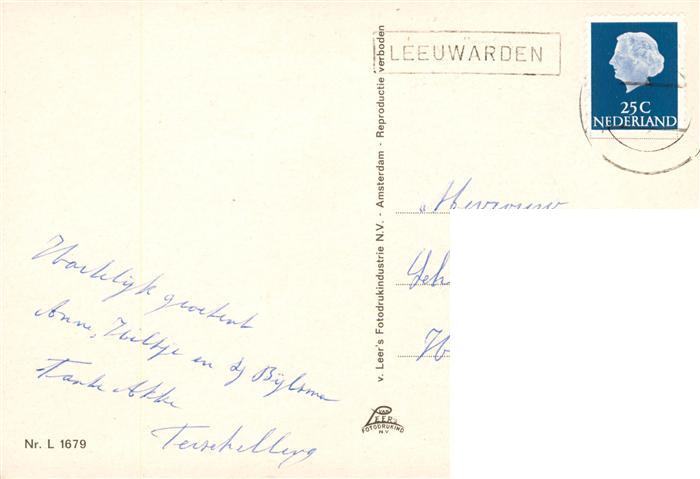 LEEUWARDEN
25C
NEDERLAND
Mevrouw
Hartelijk groeten
Anne, Wiltje en dj Bijlsma
Tante Akke
Terschelling
Nr. L 1679
v. Leer's Fotodrukindustrie N.V. - Amsterdam - Reproductie verboden
VAN
LEER'S
FOTODRUKIND
N.V.